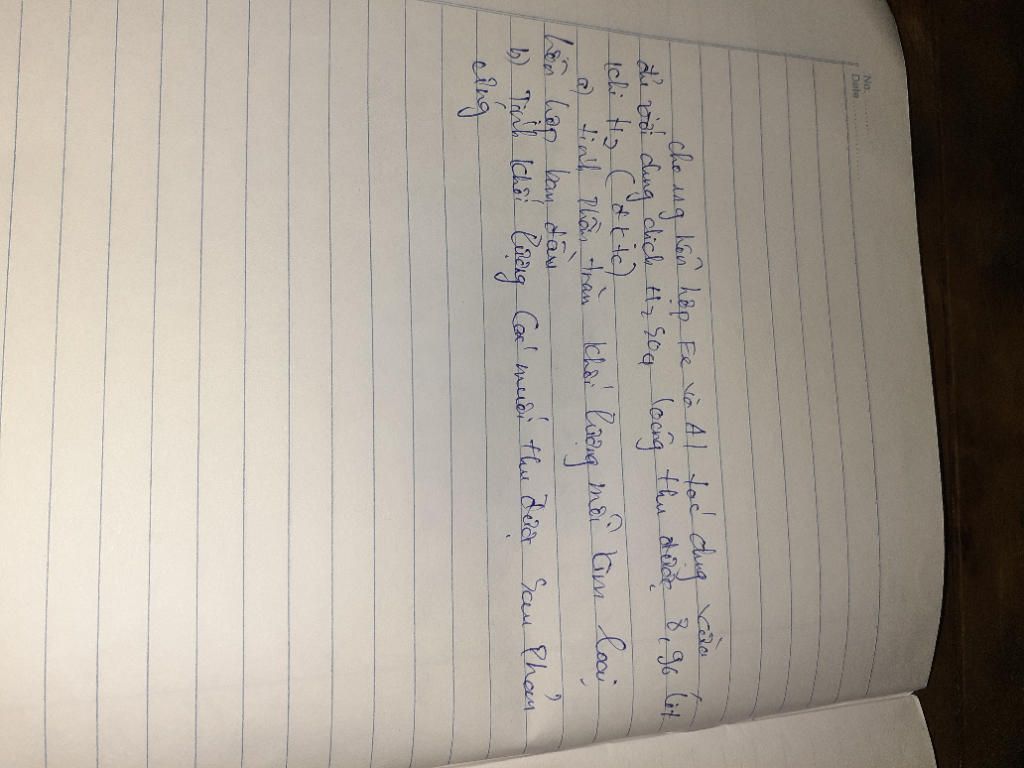 No.
Date
cho ung hỗn hợp Fe và Al tác dụng vừa
đủ với dung dịch H2SO4 loãng thu được 8,96 lít
khí H2 (đktc)
a) tính phần trăm khối lượng mỗi kim loại
hỗn hợp ban đầu
b) Tính khối lượng các muối thu được sau phản
ứng